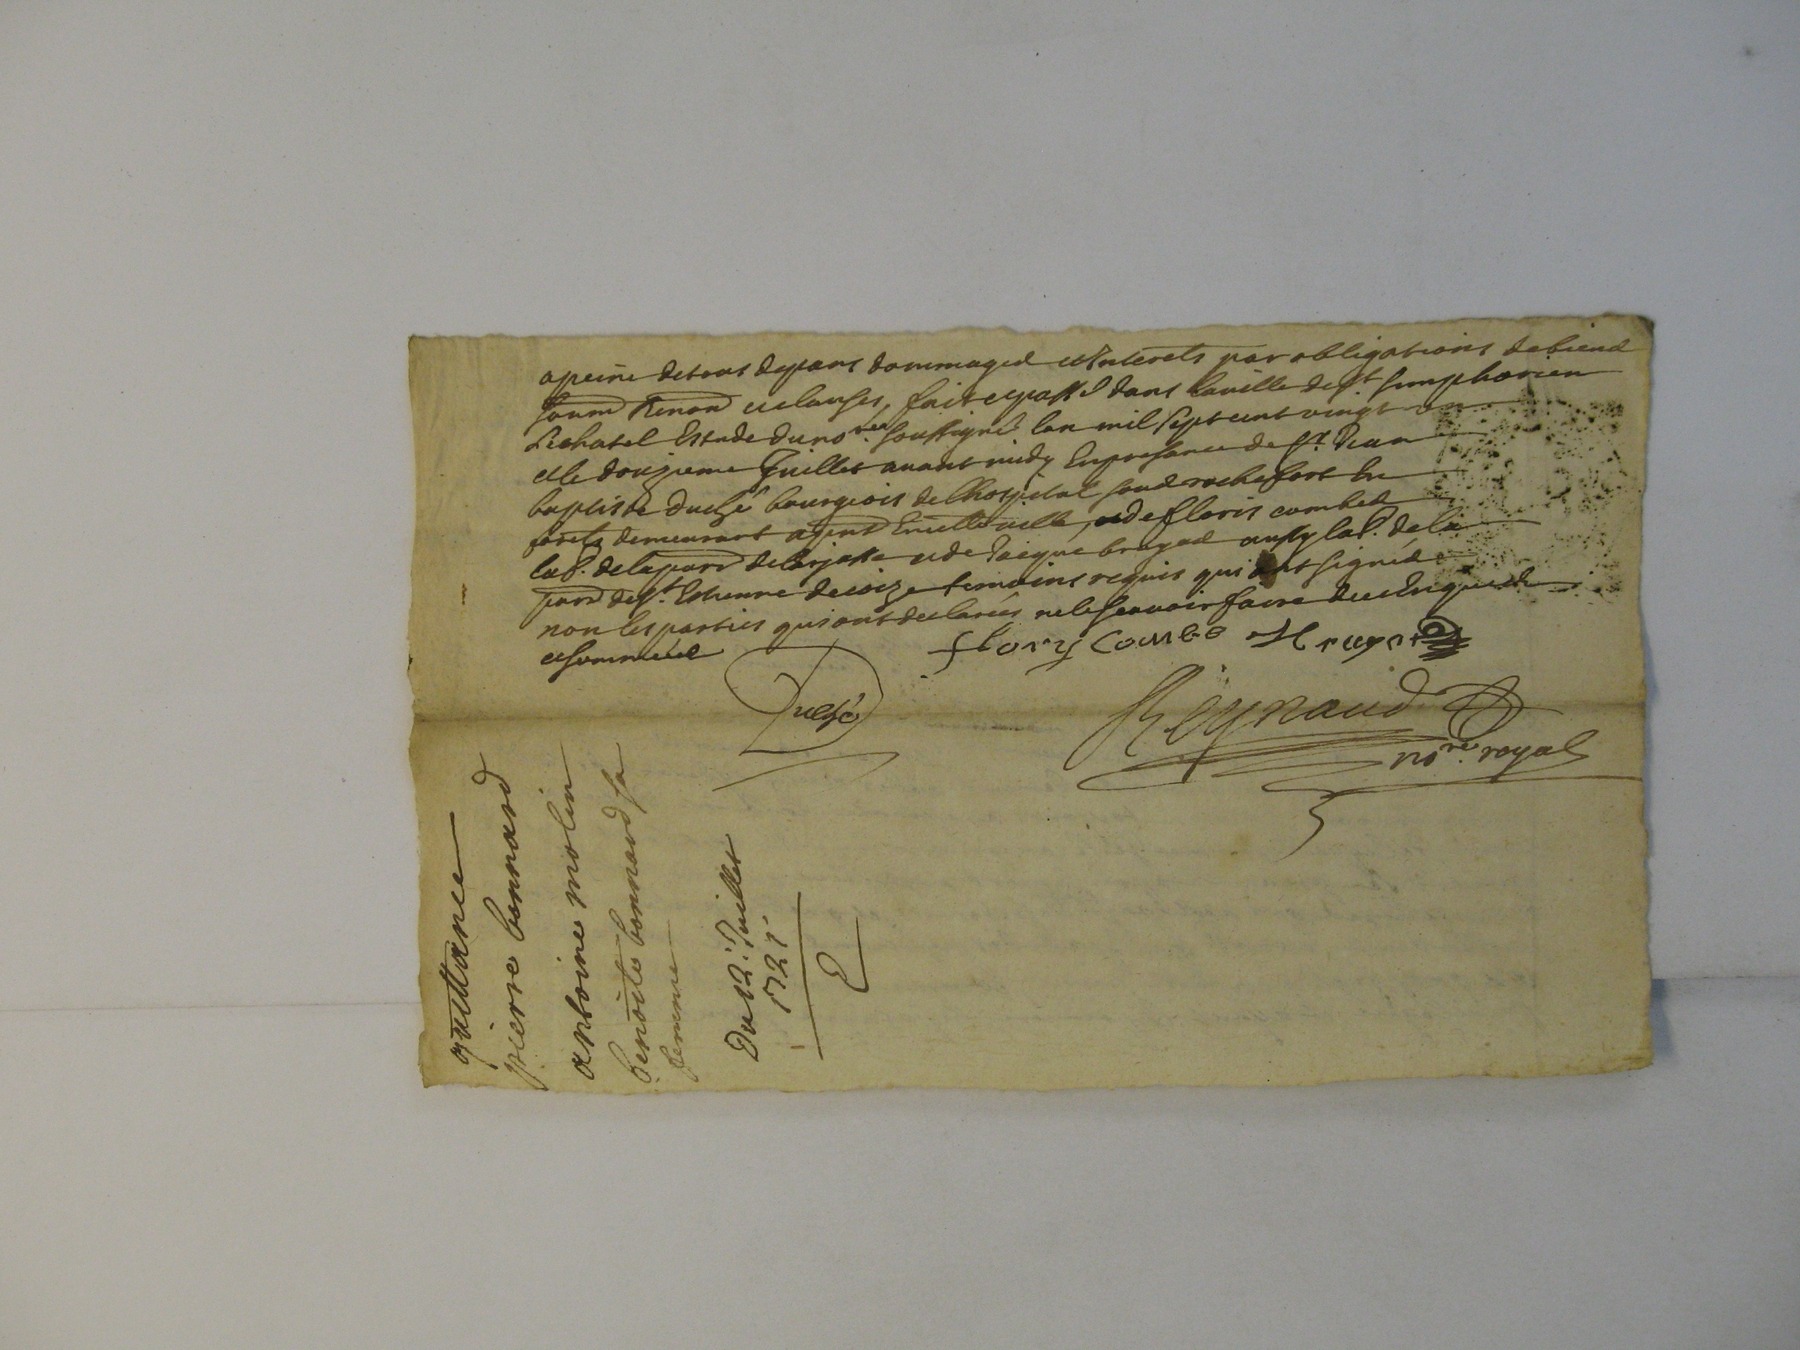 apeine detous depans dommages et Interets par obligations de biens
soum Renon et clauses, fait et passé dans la ville de St Simphorien
Lechatel Estude du nore. soussigné lan mil sept cent vingt un
et le douzieme Juillet avant midy En presance de Sr. Jean
baptiste Duché bourgeois de lhospital soud rochefort En
forets demeurant apnt En cette ville, et de floris combes
lab. de la parr de larjasse et de Jacque bruyas aussy lab. de la
parr de St. Estienne de coize temoins requis qui ont signés
non les parties qui ont declarés ne le scavoir faire de ce Enquis
et sommées
flory Combe
Duché
Reynaud
nore. royal
quittance
pierre bonnard
antoine molin
benoite bonnard sa
femme
Du 12. Juillet
1721.